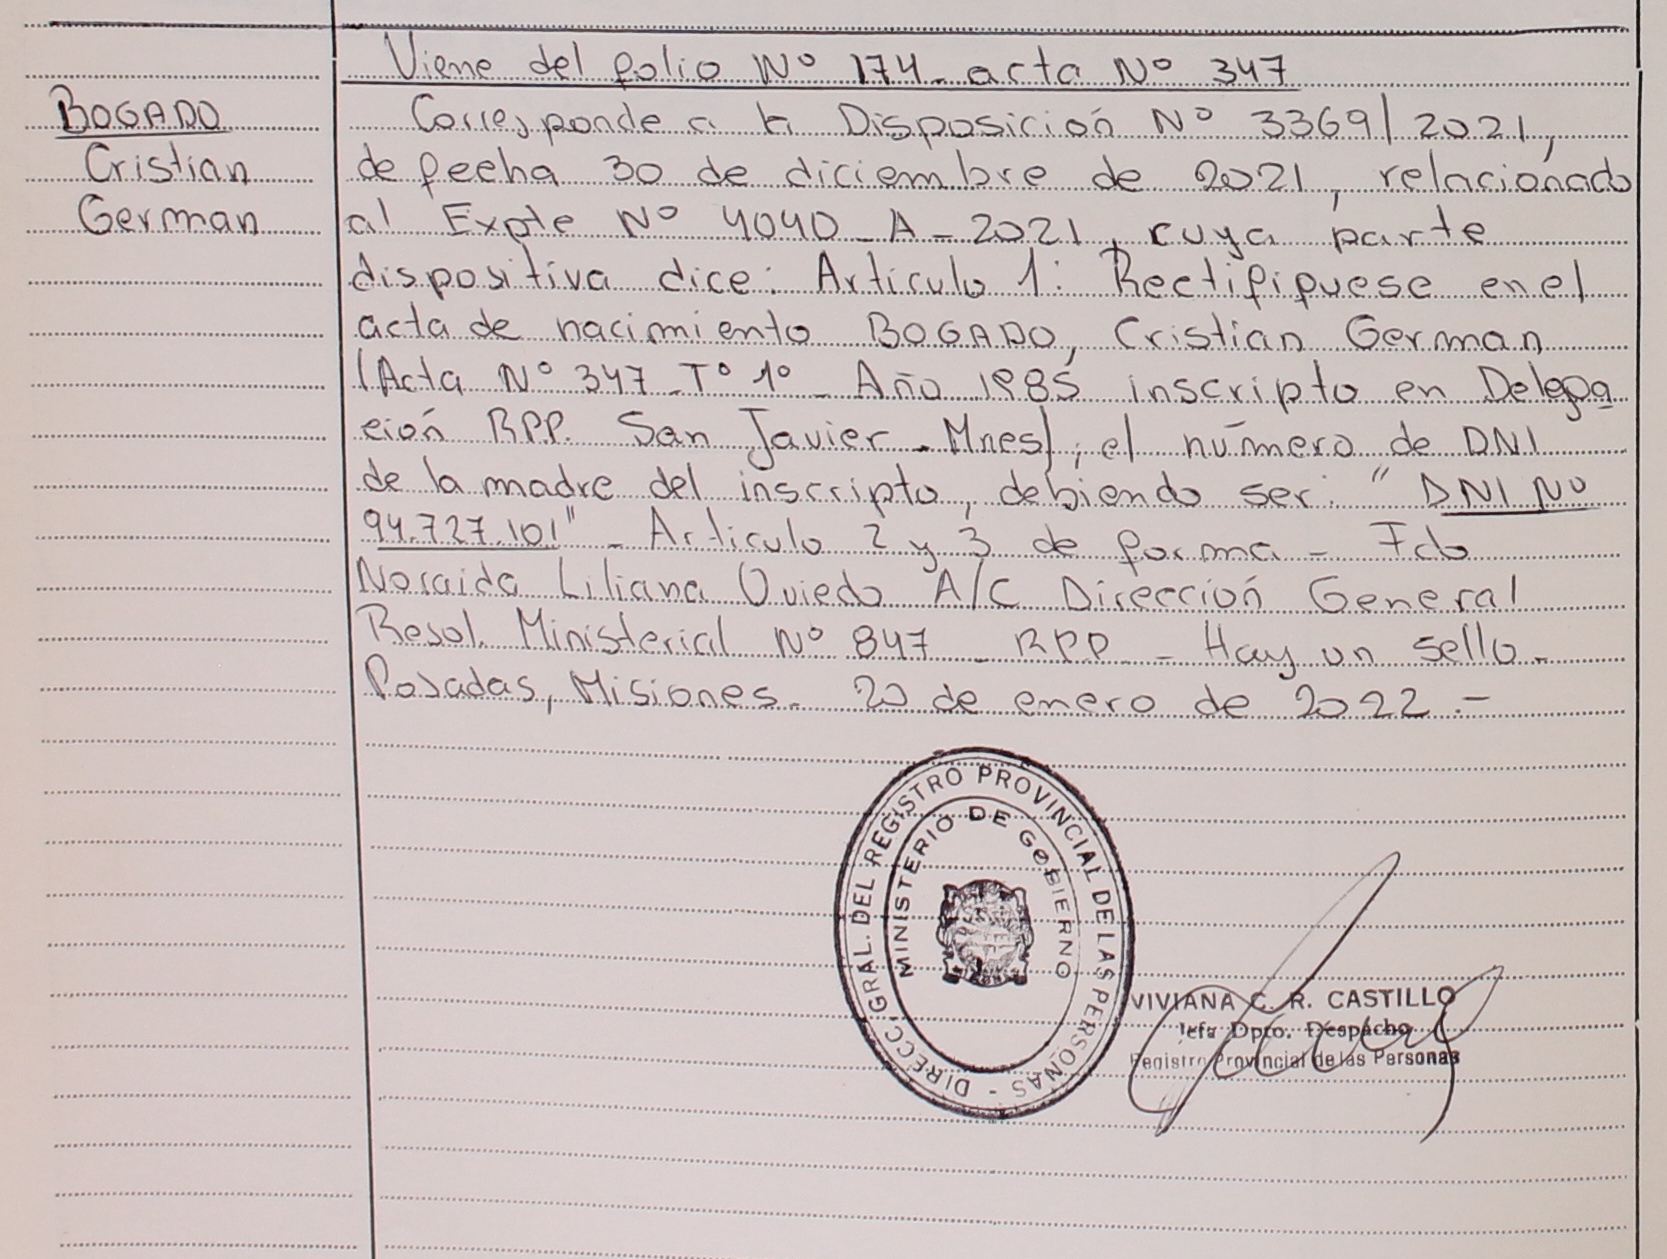 Viene del folio Nº 174 - acta Nº 347
BOGADO
Cristian
German
Corresponde a la Disposición Nº 3369/2021,
de fecha 30 de diciembre de 2021, relacionado
al Expte Nº 4040 - A - 2021, cuya parte
dispositiva dice: Articulo 1: Rectifiquese en el
acta de nacimiento BOGADO, Cristian German
(Acta Nº 347 - Tº 1º - Año 1985 inscripto en Delega
ción RPP. San Javier - Mnes), el número de DNI
de la madre del inscripto, debiendo ser: "DNI Nº
94.727.101" - Articulo 2 y 3 de forma - Fdo
Noraida Liliana Oviedo A/C Dirección General
Resol. Ministerial Nº 847 - RPP - Hay un sello -
Posadas, Misiones. 20 de enero de 2022 .-
DIRECC. GRAL. DEL REGISTRO PROVINCIAL DE LAS PERSONAS -
MINISTERIO DE GOBIERNO
VIVIANA C. R. CASTILLO
Jefa Dpto. Despacho
Registro Provincial de las Personas